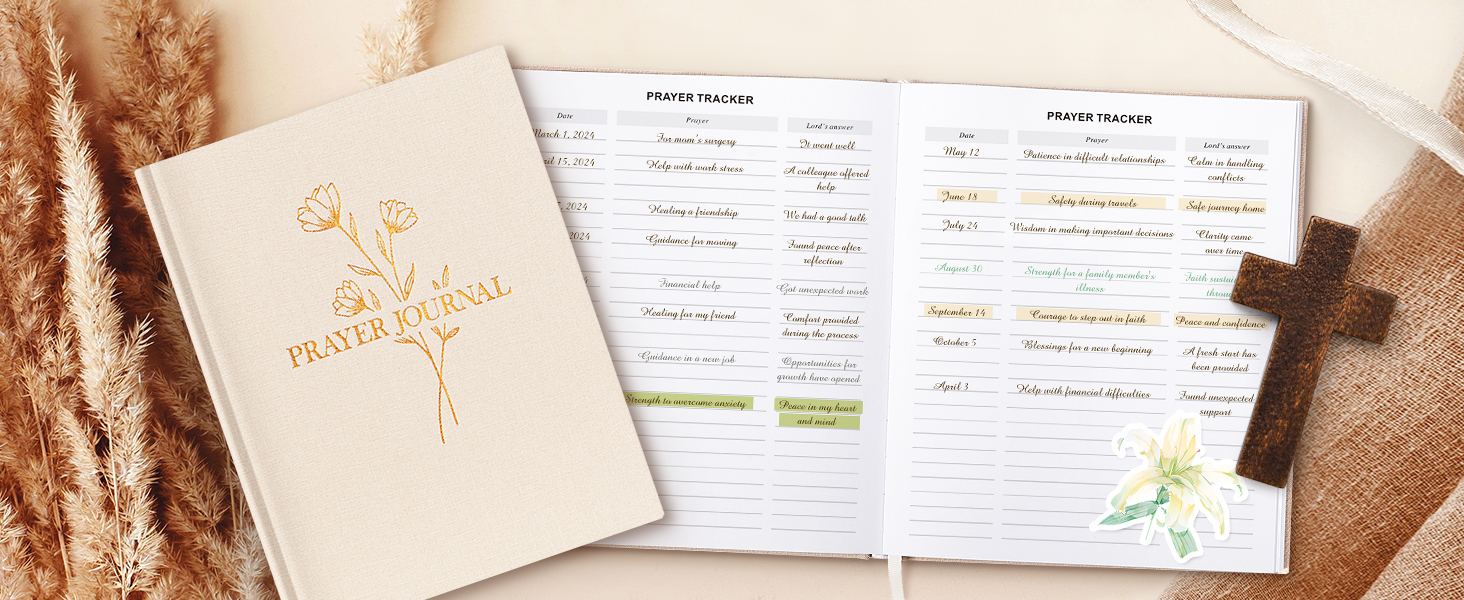 PRAYER JOURNAL
PRAYER TRACKER
Date Prayer Lord's answer
March 1, 2024 For mom's surgery It went well
15, 2024 Help with work stress A colleague offered
help
2024 Healing a friendship We had a good talk
2024 Guidance for moving Found peace after
reflection
Financial help Got unexpected work
Healing for my friend Comfort provided
during the process
Guidance in a new job Opportunities for
growth have opened
Strength to overcome anxiety Peace in my heart
and mind
PRAYER TRACKER
Date Prayer Lord's answer
May 12 Patience in difficult relationships Calm in handling
conflicts
June 18 Safety during travels Safe journey home
July 24 Wisdom in making important decisions Clarity came
over time
August 30 Strength for a family member's Faith
illness
September 14 Courage to step out in faith Peace and confidence
October 5 Blessings for a new beginning A fresh start has
been provided
April 3 Help with financial difficulties Found unexpected
support